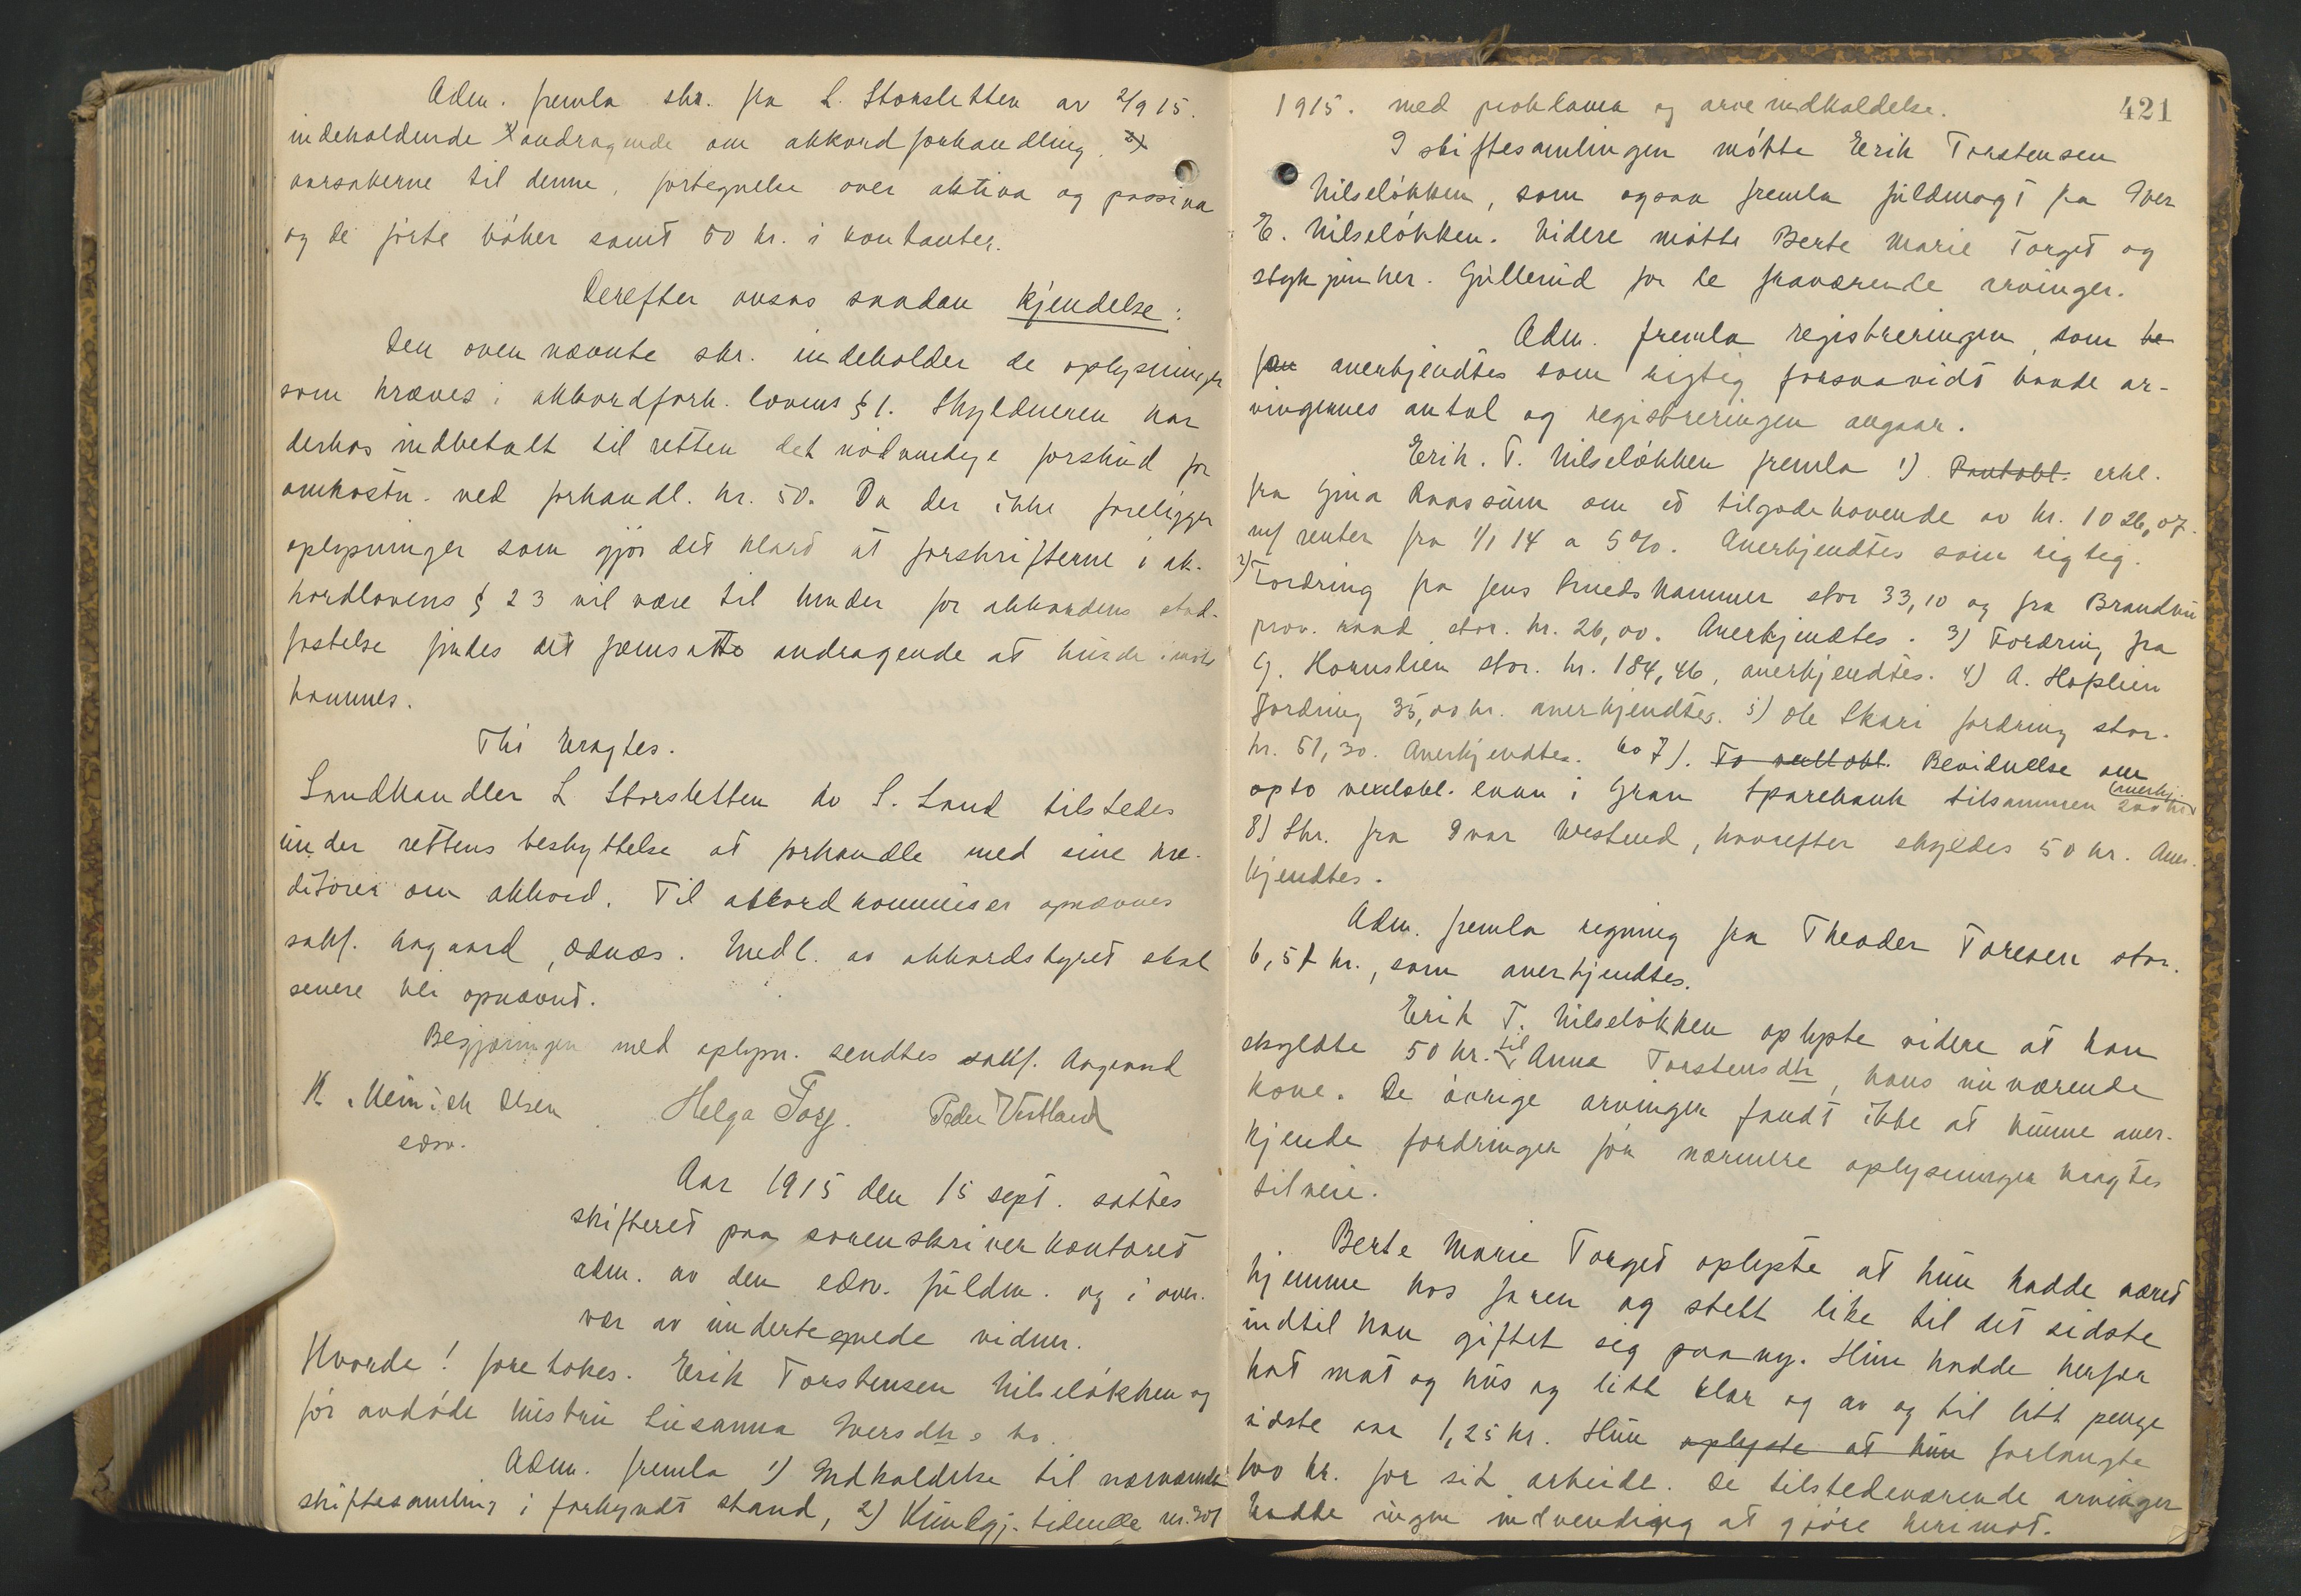 Adm. fremla skr. fra L. Storsletten av 2/9 15.
indeholdende andragende om akkordforhandling.
aarsakerne til denne, fortegnelse over aktiva og passiva
og de førte bøker samt 50 kr. i kontanter.
Derefter avsas saadan kjendelse:
Den oven nævnte skr. indeholder de oplysninger
som kræves i akkordforh. lovens § 1. Skyldneren har
derhos indbetalt til retten det nødvendige forskud for
omkostn. ved forhandl. kr. 50. Da der ikke foreligger
oplysninger som gjør det klart at forskrifterne i ak-
kordlovens § 23 vil være til hinder for akkordens stad-
fæstelse findes det fremsatte andragende at burde imøte
kommes.
Thi eragtes.
Landhandler L Storsletten av S. Land tilstedes
under rettens beskyttelse at forhandle med sine kre-
ditorer om akkord. Til akkordkommissær opnævnes
sakf. Aagaard, Odnæs. Medl. av akkordstyret skal
senere bli opnævnt.
Begjæringen med oplysn. sendtes sakf. Aagaard
K. Meinich Olsen Helga Torg. Peder Vestland
edsv.
Aar 1915 den 15 sept. sattes
skifteret paa sorenskriverkontoret
adm. av den edsv. fuldm. og i over-
vær av undertegnede vidner.
Hvorda! foretokes. Erik Torstensen Nilseløkken og
før avdøde hustru Susanna Iversdtrs bo.
Adm. fremla 1) Indkaldelse til nærværende
skiftesamling i forkyndt stand, 2) Kundgj. tidende nr. 301
421
1915. med proklama og arveindkaldelse.
I skiftesamlingen møtte Erik Torstensen
Nilseløkken, som ogsaa fremla fuldmagt fra Iver
E. Nilseløkken. Videre møtte Berte Marie Torget og
stykjunker. Gullerud for de fraværende arvinger.
Adm. fremla registreringen, som be
fan anerkjendtes som rigtig forsaavidt baade ar-
vingernes antal og registreringen angaar.
Erik. T. Nilseløkken fremla 1) Pantobl. erkl.
fra Gina Raassum om et tilgodehavende av kr. 1026,07.
m/ renter fra 1/1 14 a 5%. Anerkjendtes som rigtig.
2) Fordring fra Jens Smedshammer stor 33,10 og fra Brandbu
prov. raad stor. kr. 26,00. Anerkjendtes. 3) Fordring fra
G. Hornslien stor. kr. 184,46, anerkjendtes. 4) A. Hoplien
fordring 35,00 kr. anerkjendtes. 5) Ole Skari fordring stor.
kr. 51,30. Anerkjendtes. 6 o 7). To vexlobl. Bevidnelse om
opto vexelobl. laan i Gran Sparebank tilsammen 200 kr. (anerkj.
8) Skr. fra Ivar Westlund, hvorefter skyldes 50 kr. Aner-
kjendtes.
Adm. fremla regning fra Theoder Toresen stor.
6,51 kr., som anerkjendtes.
Erik T. Nilseløkken oplyste videre at han
skyldte 50 kr. til Anne Torstensdtr, hans nuværende
kone. De øvrige arvinger fandt ikke at kunne aner-
kjende fordringen før nærmere oplysninger bragtes
tilveie.
Berte Marie Torget oplyste at hun hadde været
hjemme hos faren og stelt like til det sidste
indtil han giftet sig paany. Hun hadde herfor
hat mat og hus og litt klær og av og til litt penge
sidste aar 1,25 kr. Hun oplyste at hun forlangte
100 kr. for sit arbeide. De tilstedeværende arvinger
hadde ingen indvending at gjøre herimot.